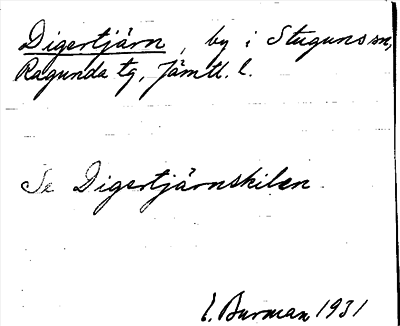 Digertjärn, by i Stuguns sn,
Ragunda tg, Jämtl. l.
Se Digertjärnskilen.
E. Burman 1931